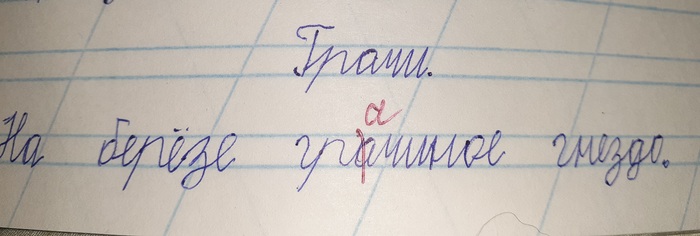 Грачи.
а
На берёзе грачиное гнездо.